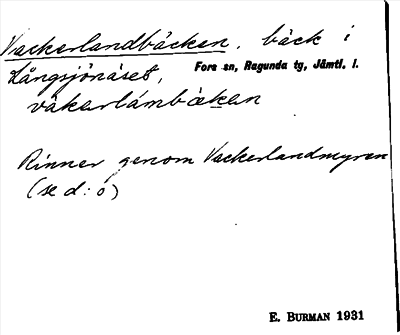 Vackerlandbäcken, bäck i
Långsjönäset, Fors sn, Ragunda tg, Jämtl. l.
vàkarlámbäkan
Rinner genom Vackerlandmyren
(se d:o)
E. BURMAN 1931